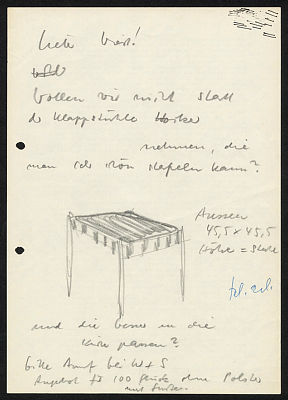 Liebe [...]!
Wollen wir nicht statt
der Klappstühle Hocker
nehmen, die
man schön stapeln kann?
Aussen
45,5 x 45,5
Höhe = Stuhl
und die besser in die
passen?
bitte Anruf bei W + S
Angebot für 100 Stück ohne Polster